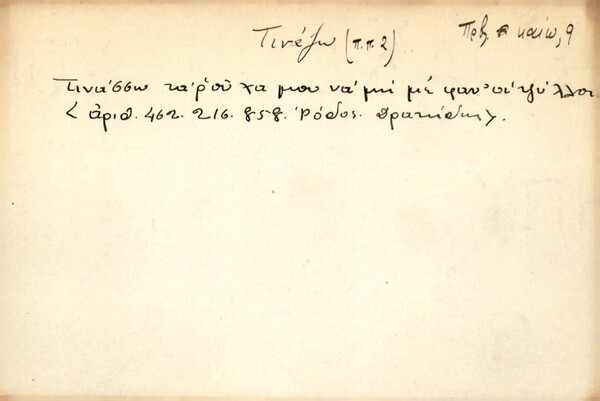 Τινάζω (π.π. 2)
Πρβ. καίω, 9
Τινάσσω τα ῥοῦχα μου νά μή μέ φαν' οἱ ψύλλοι
< ἀριθ. 462. 216. 858. Ρόδος. Δρακίδης>.